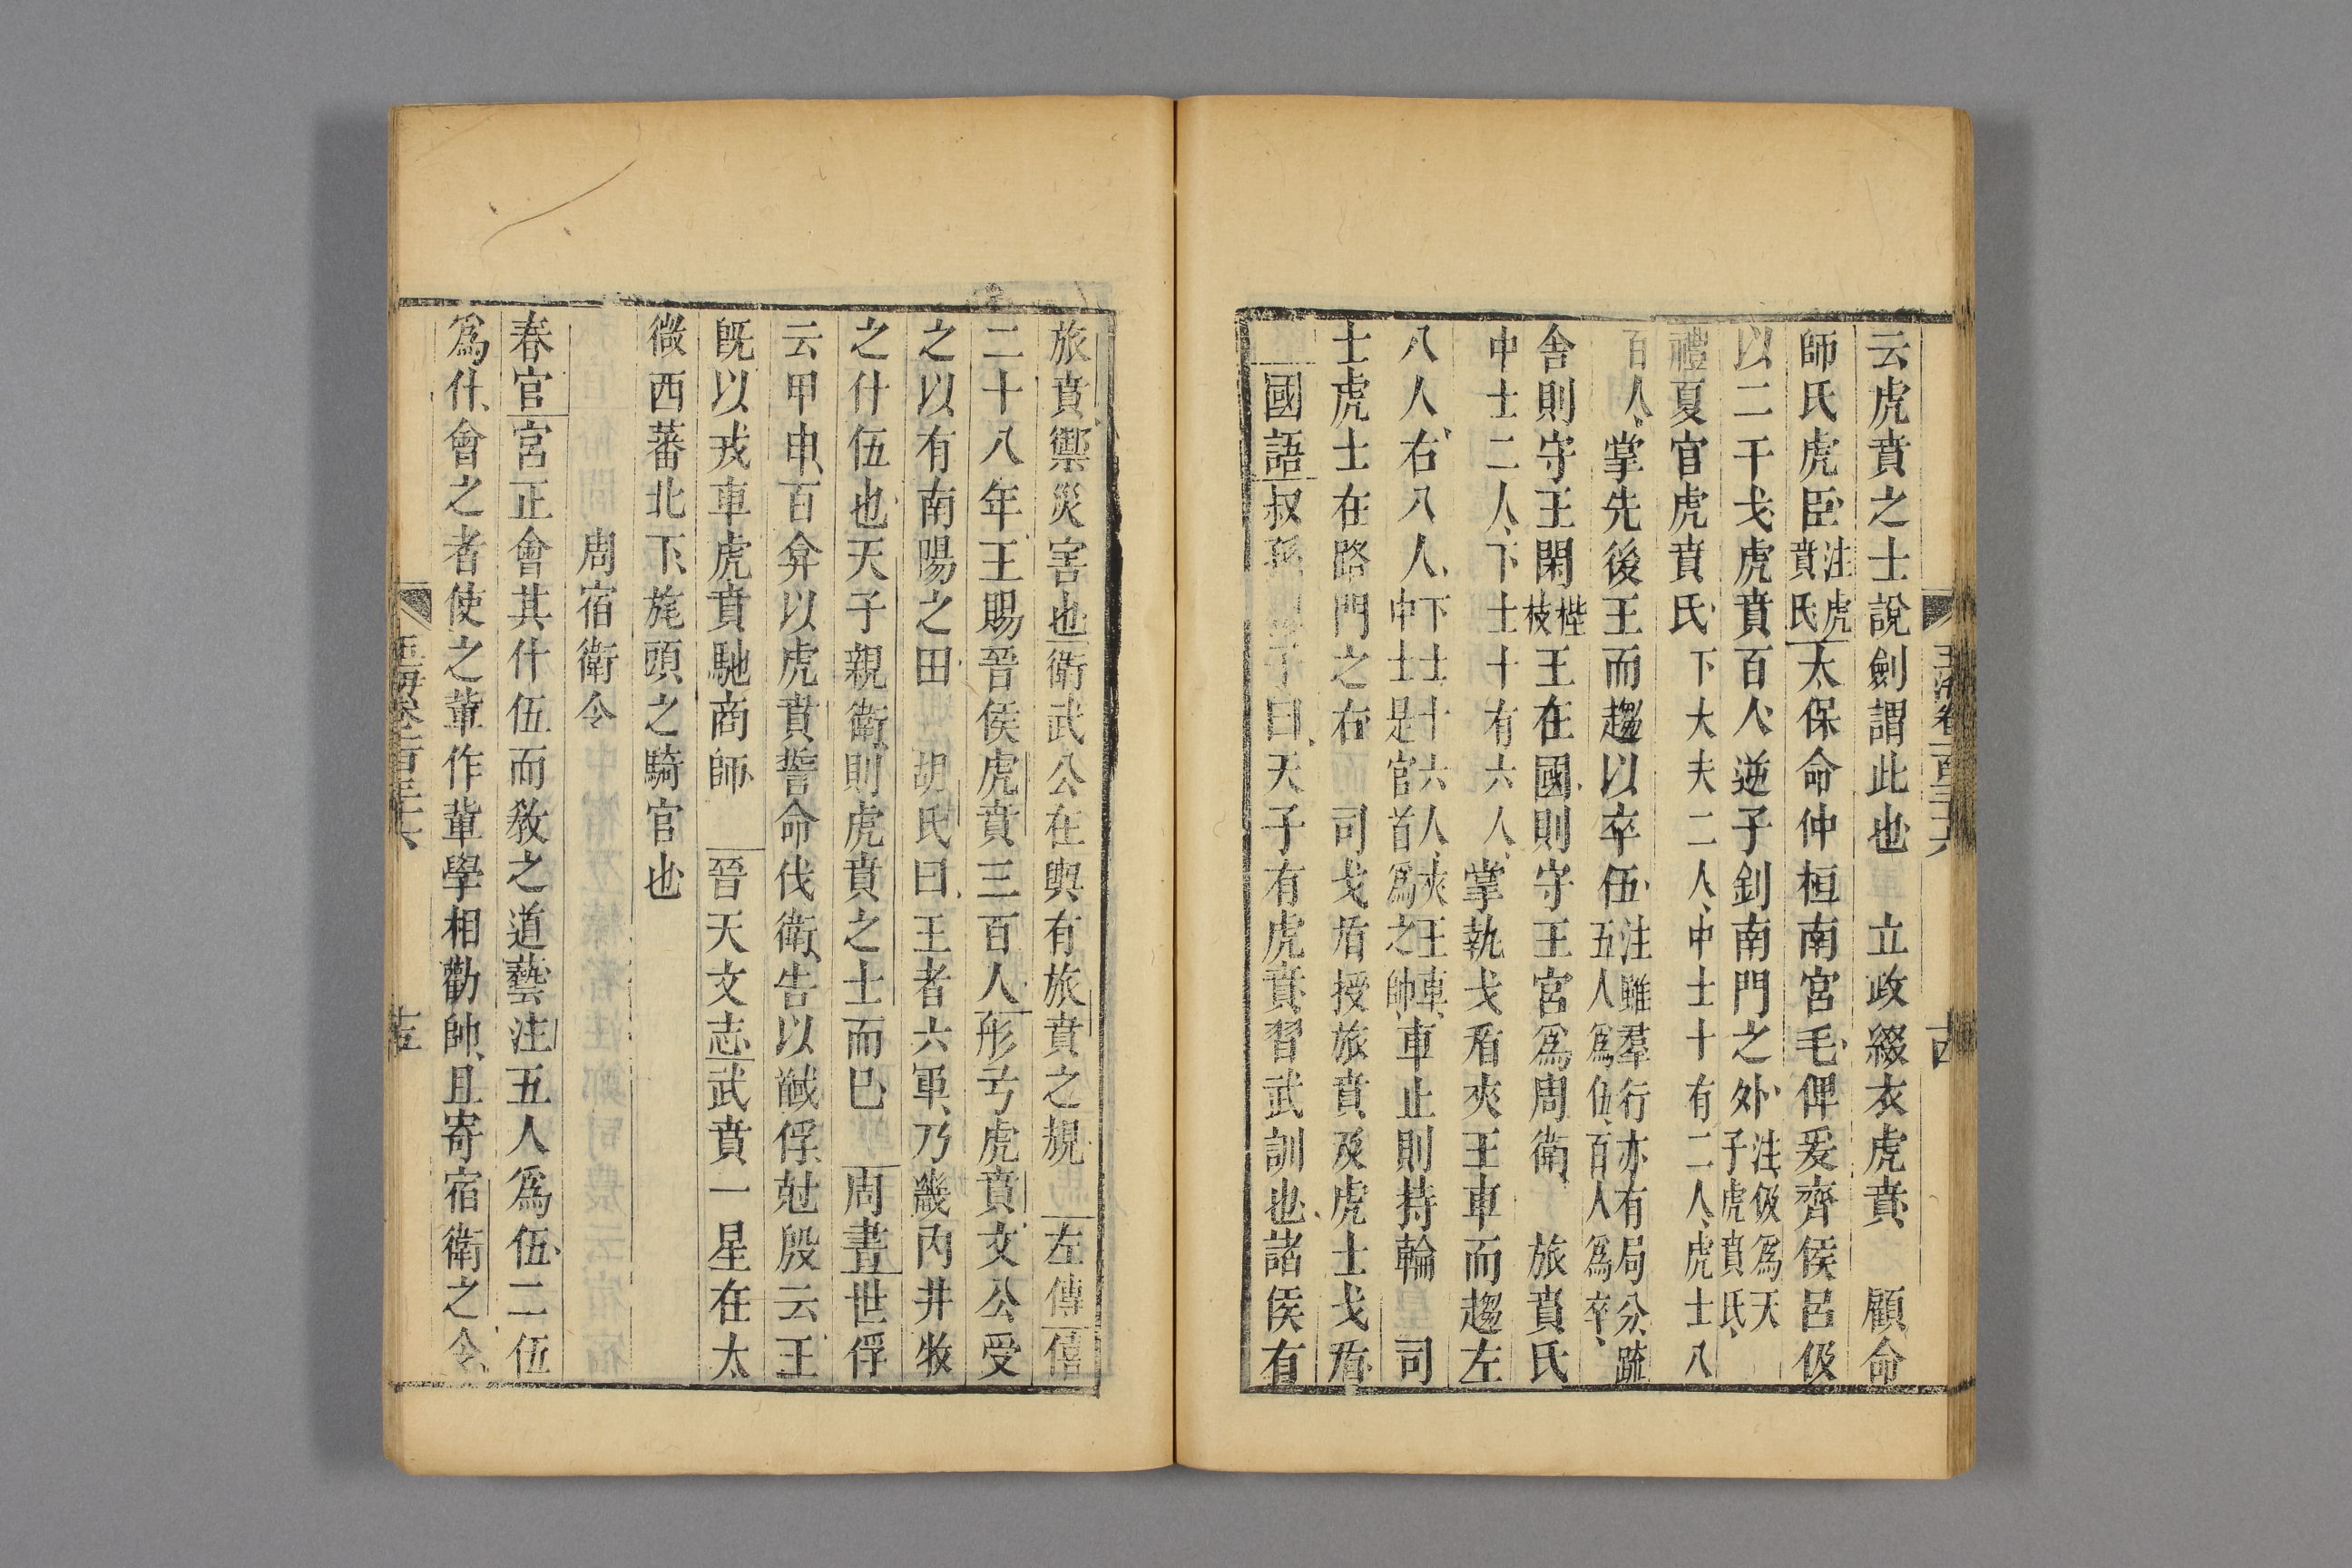 云虎賁之士說劍謂此也 立政綴衣虎賁 顧命
師氏虎臣注虎賁氏太保命仲桓南宮毛俾爰齊侯呂伋
以二干戈虎賁百人逆子釗南門之外注伋爲天子虎賁氏
禮夏官虎賁氏下大夫二人中士十有二人虎士八
百人掌先後王而趨以卒伍注雖羣行亦有局分疏五人爲伍百人爲卒
舍則守王閑梐枑王在國則守王宮爲周衛 旅賁氏
中士二人下士十有六人掌執戈盾夾王車而趨左
八人右八人下士十六人夾王車中士是官首爲之帥車止則持輪 司
士虎士在路門之右 司戈盾授旅賁及虎士戈盾
國語叔孫 子曰天子有虎賁習武訓也諸侯有
旅賁禦災害也衛武公在輿有旅賁之規 左傳僖
二十八年王賜晉侯虎賁三百人彤弓虎賁文公受
之以有南陽之田 胡氏曰王者六軍乃畿内井牧
之什伍也天子親衛則虎賁之士而已 周書世俘
云甲申百弇以虎賁誓命伐衛告以馘俘尅殷云王
旣以戎車虎賁馳商師 晉天文志武賁一星在太
微西蕃北下旄頭之騎官也
周宿衛令
春官宮正會其什伍而敎之道藝注五人爲伍二伍
爲什會之者使之輩作輩學相勸帥且寄宿衛之令
玉海卷一百三十六
古
玉海卷一百三十六